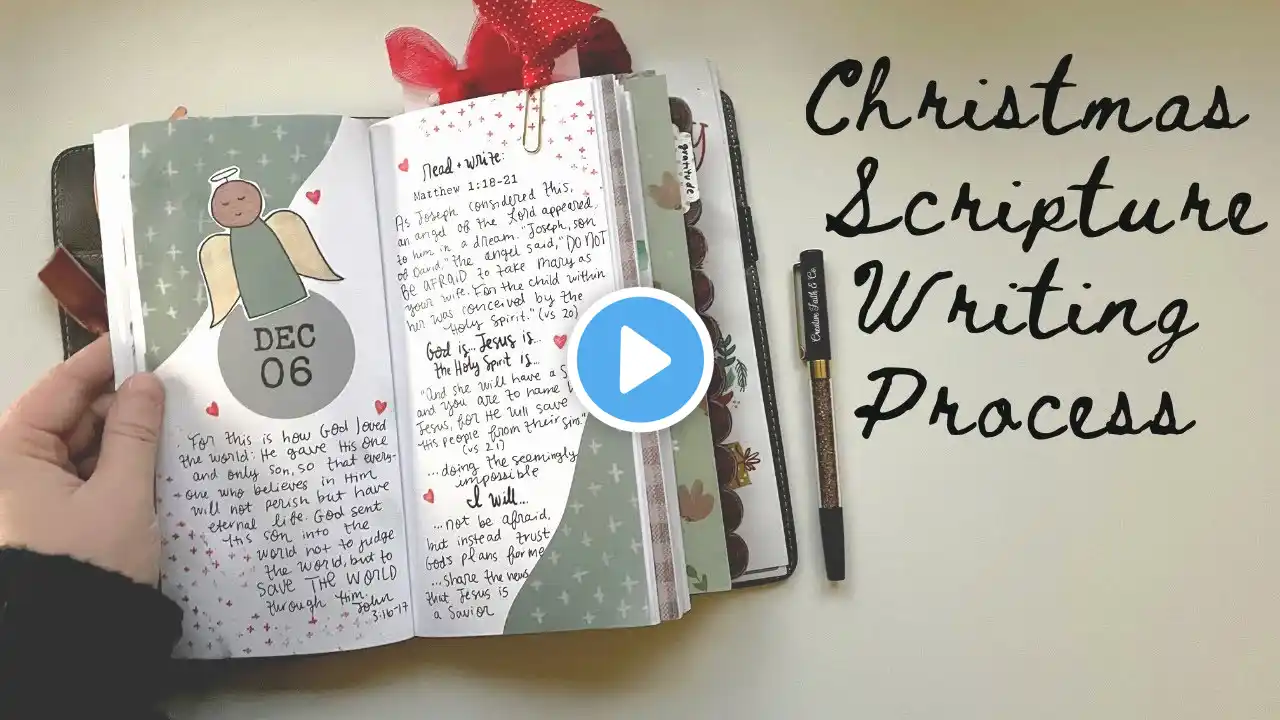 Christmas
Scripture
Writing
Process
DEC
06
For this is how God loved
the world: He gave His one
and only son, so that every-
one who believes in Him
will not perish but have
eternal life. God sent
His son into the
world not to judge
the world, but to
SAVE THE WORLD
through Him.
John
3:16-17
Read + write:
Matthew 1:18-21
As Joseph considered this,
an angel of the Lord appeared
to him in a dream. "Joseph, son
of David," the angel said, "DO NOT
BE AFRAID to take Mary as
your wife. For the child within
her was conceived by the
Holy Spirit." (vs 20)
God is... Jesus is...
the Holy Spirit is...
"And she will have a S
and you are to name
Jesus, for He will save
His people from their sin."
(vs 21)
...doing the seemingly
impossible
I will...
...not be afraid,
but instead trust
God's plans for me
...share the news
that Jesus is
a Savior
gratitude
Creative Faith & Co.